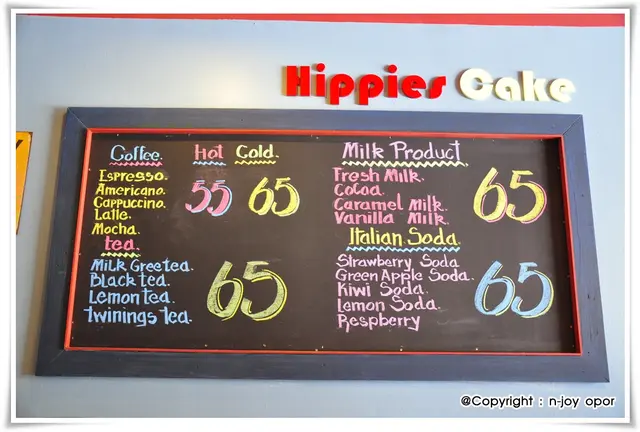 Hippies Cake
Coffee. Hot Cold.
Espresso.
Americano.
Cappuccino.
Latte.
Mocha.
55 65
tea.
Milk Greetea.
Black tea.
Lemon tea.
twinings tea.
65
Milk Product
Fresh Milk.
Cocoa.
Caramel Milk.
Vanilla Milk.
65
Italian Soda.
Strawberry Soda
Green Apple Soda.
Kiwi Soda.
Lemon Soda.
Respberry
65
@Copyright : n-joy opor